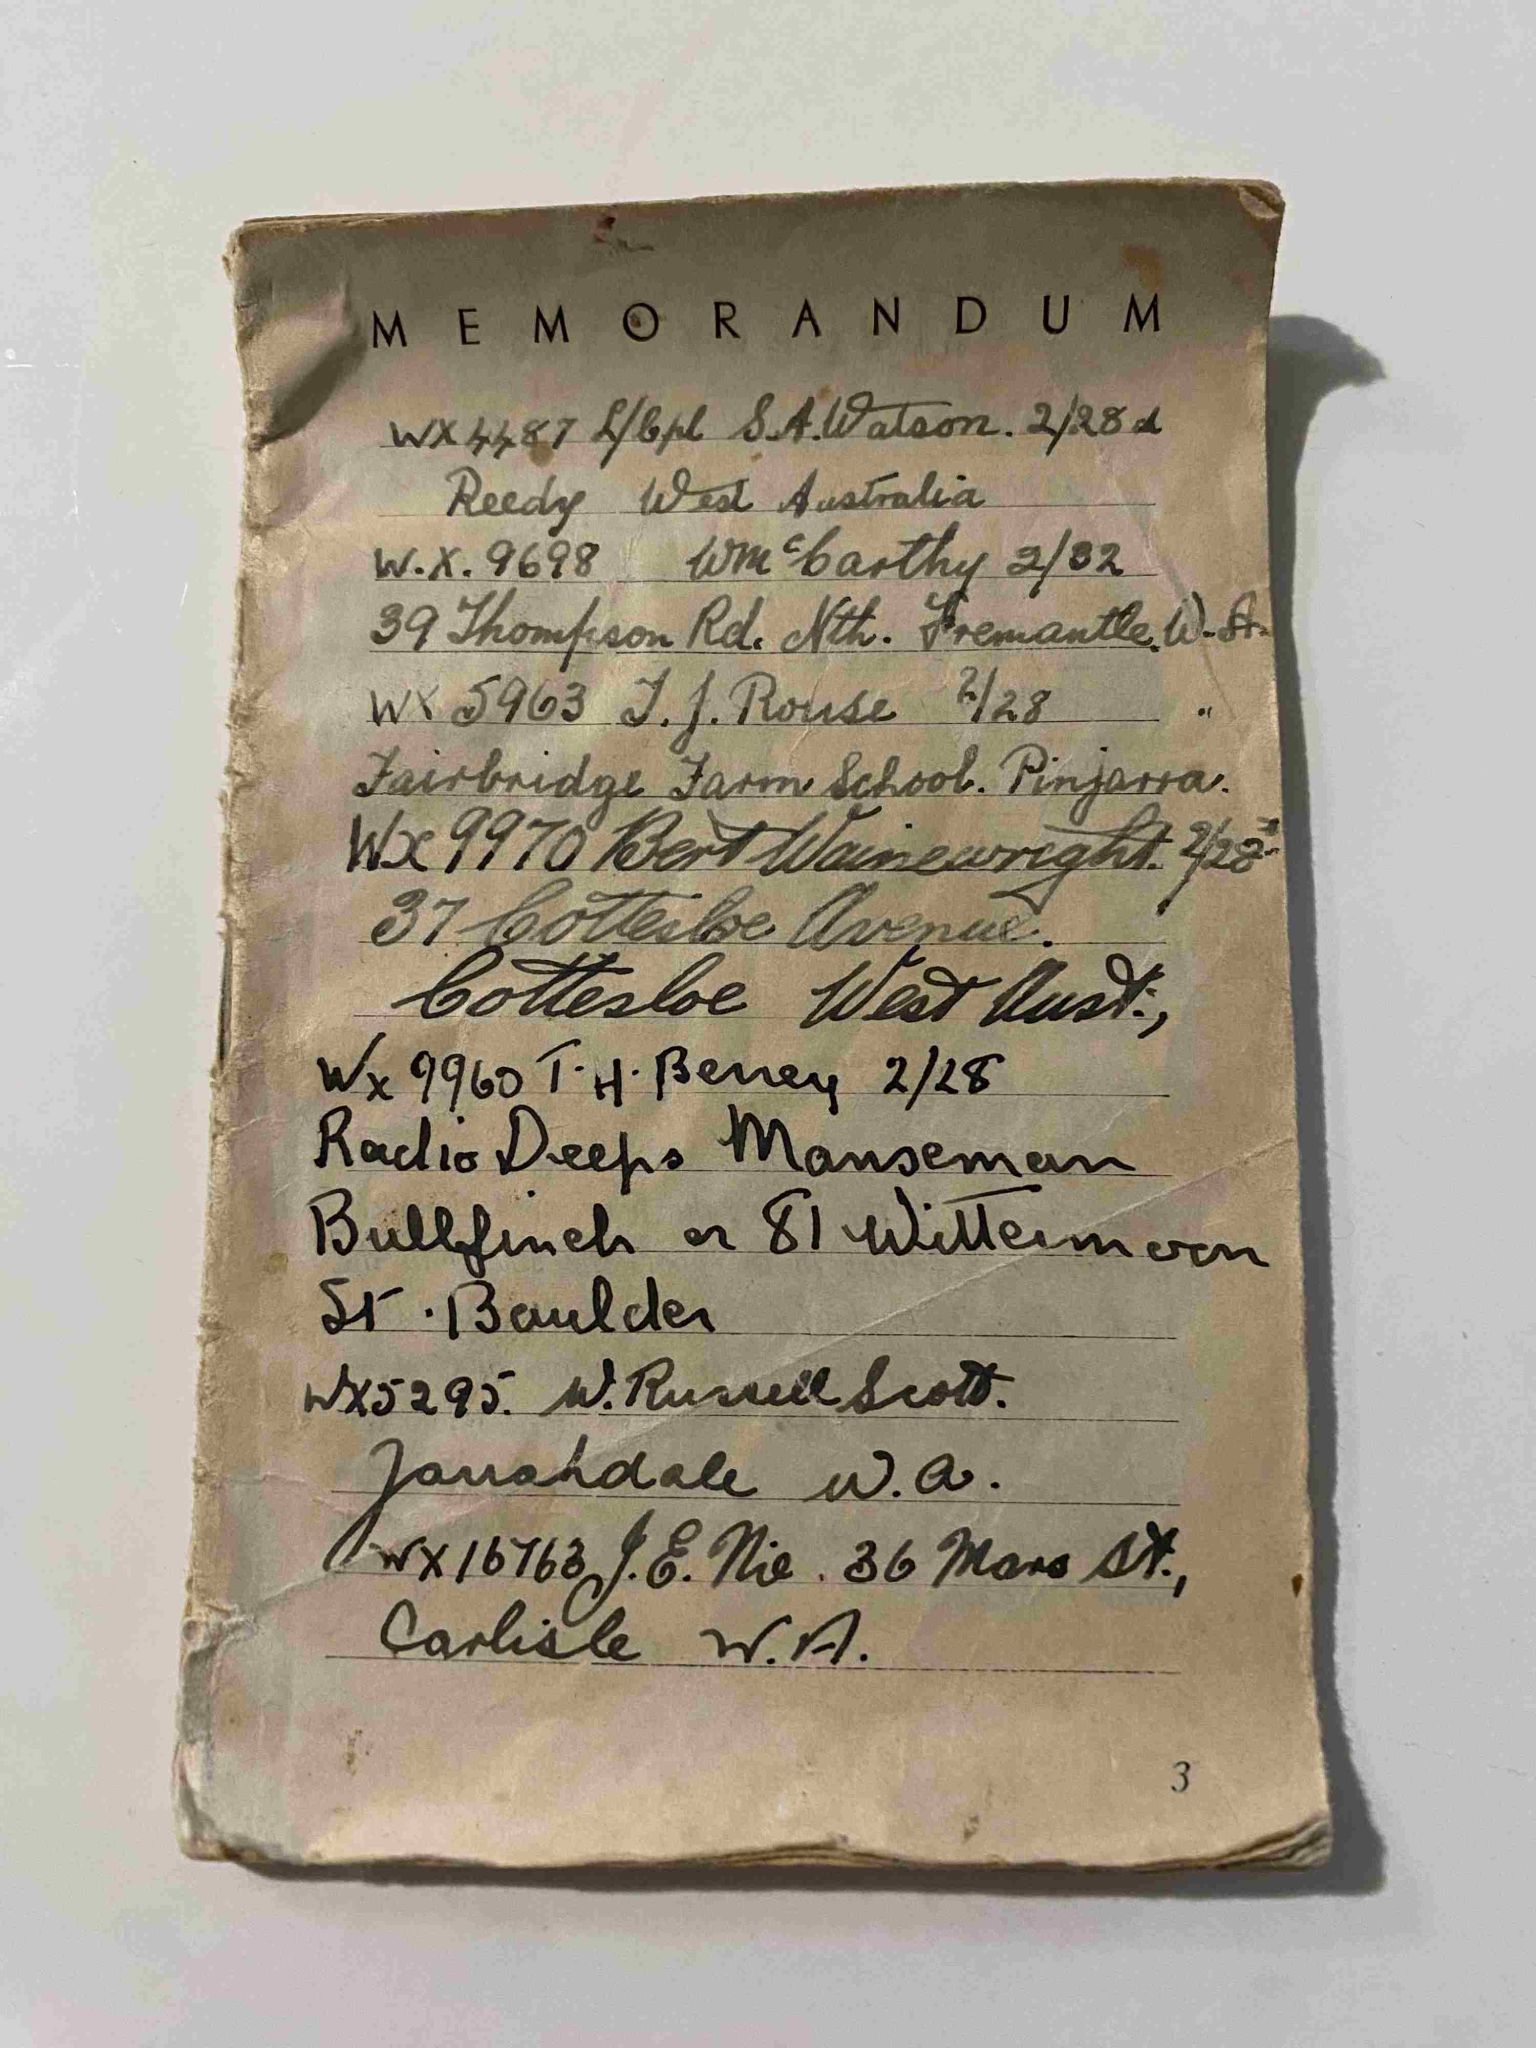 MEMORANDUM
WX4487 L/Cpl S.A. Watson. 2/28
Reedy West Australia
W.X. 9698 W McCarthy 2/32
39 Thompson Rd. Nth. Fremantle. W.A.
WX 5963 T. J. Rouse 2/28 "
Fairbridge Farm School. Pinjarra.
Wx 9970 Bert Wainewright. 2/28
37 Cottesloe Avenue.
Cottesloe West Aust.,
Wx 9960 T. H. Berrey 2/28
Radio Deeps Manseman
Bullfinch or 81 Wittermoon
St. Boulder
WX5295. W. Russell Scott.
Jarrahdale W.A.
WX16763 J.E. Nie. 36 Mars St.,
Carlisle W.A.
3